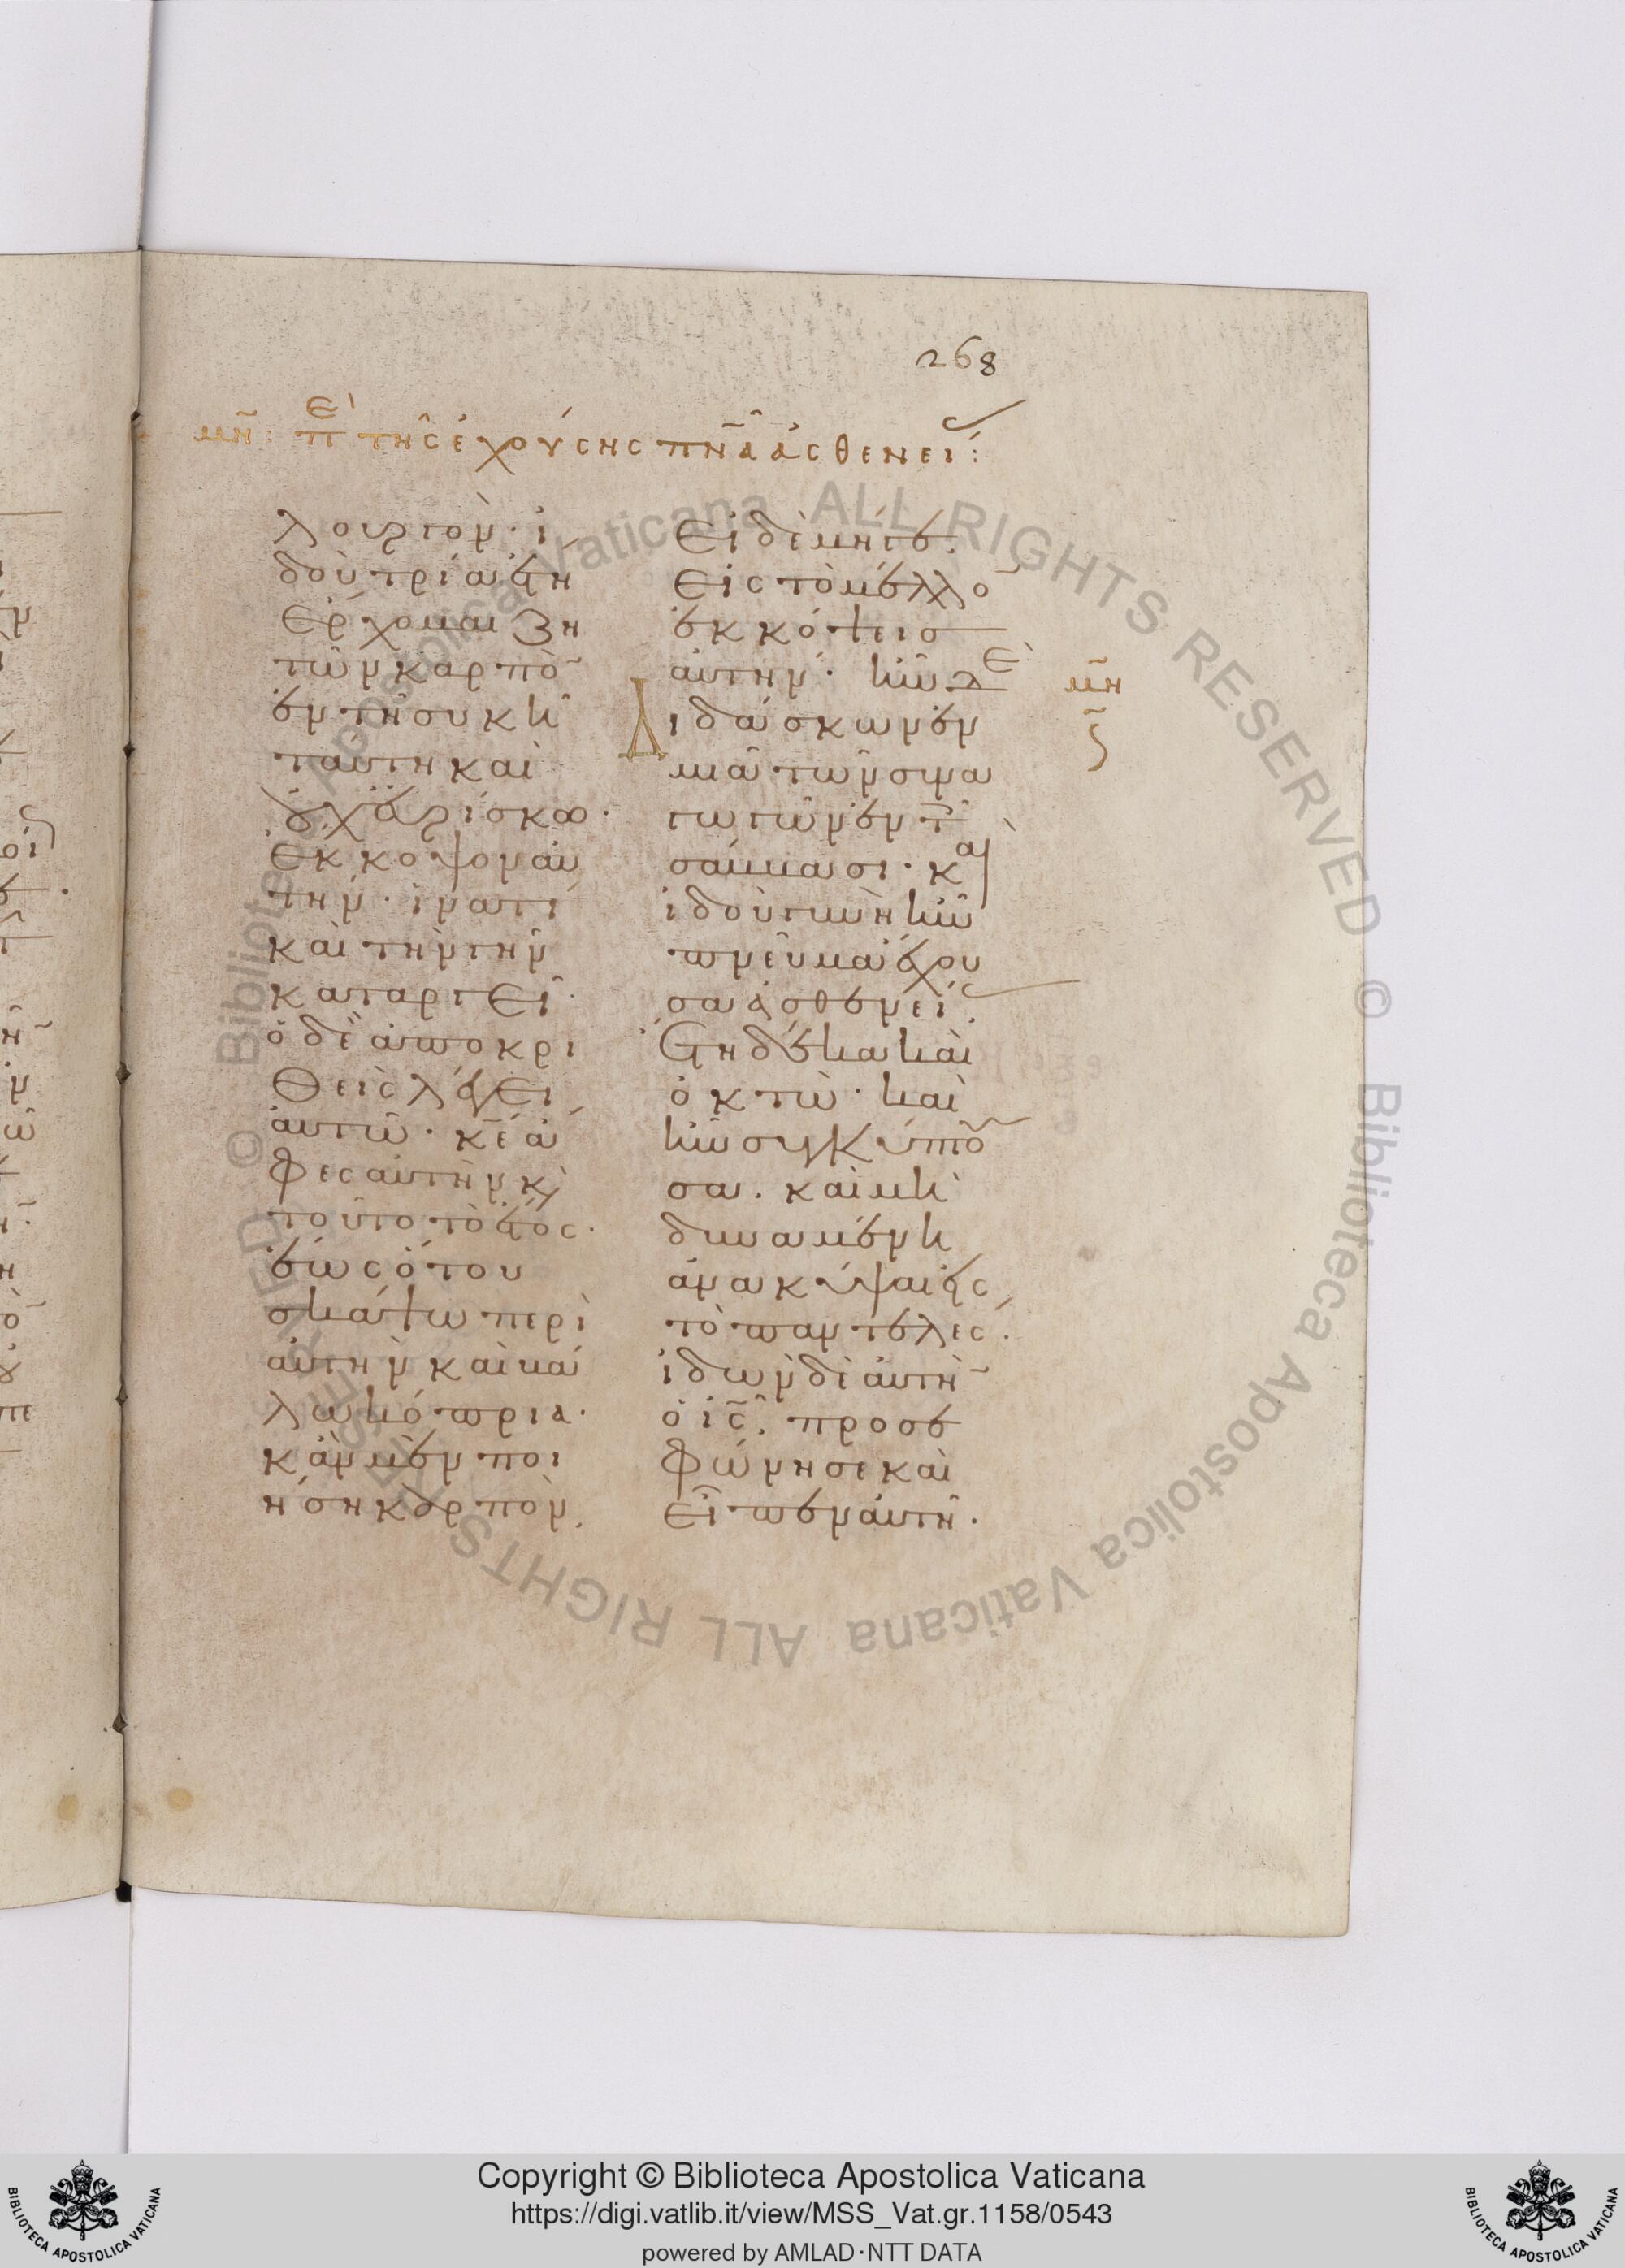 268
μη̃: ὲπ τῆς ἐχούσης πνᾶ ἀσθενεί:
λουργόν· ἰ
δοὺ τρία ἔτη
ἔρχομαι ζη
τῶν καρπὸ̃
ἐν τῇ συκῇ
ταύτη καὶ
οὐχ εὑρίσκω·
ἔκκοψον αὐ
τήν· ἱνατί
καὶ τὴν γῆν
καταργεῖ·
ὁ δὲ ἀποκρι
θεὶς λέγει
αὐτῶ· κ̅ε̅ ἄ
φες αὐτὴν κ̀
τοῦτο τὸ ἔτος·
ἕως ὅτου
σκάψω περὶ
αὐτὴν καὶ βά
λω κόπρια·
κἂν μὲν ποι
ήση καρπόν.
Εἰ δὲ μήγε.
εἰς τὸ μέλλο̃
ἐκκόψεις
αὐτήν·
Διδάσκων ἐν
μιᾶ τῶν συνα
γωγῶν ἐν τ̃
σάββασι· κα
ἰδοὺ γυνὴ ἦν
πνεῦμα ἔχου
σα ἀσθενεί
ἔτη δέκα καὶ
ὀκτώ· καὶ
ἦν συγκύπτο̃
σα. καὶ μὴ
δυναμένη
ἀνακύψαι εἰς
τὸ παντελές.
ἰδὼν δὲ αὐτὴ̃
ὁ ι̅ς̅. προσε
φώνησε καὶ
εἶπεν αὐτῆ.
μη̃
ϛ̃
Copyright © Biblioteca Apostolica Vaticana
https://digi.vatlib.it/view/MSS_Vat.gr.1158/0543
powered by AMLAD·NTT DATA
BIBLIOTECA APOSTOLICA VATICANA
BIBLIOTECA APOSTOLICA VATICANA
© Biblioteca Apostolica Vaticana ALL RIGHTS RESERVED © Biblioteca Apostolica Vaticana ALL RIGHTS RESERVED